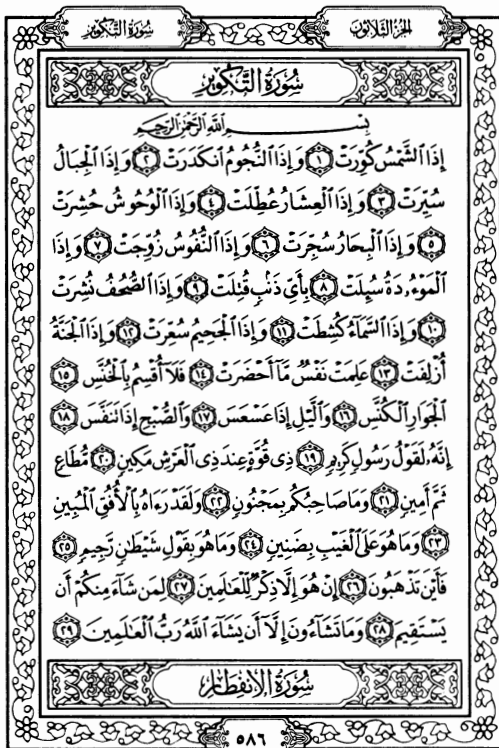 الجزء الثلاثون
سورة التكوير
سُورَةُ التَّكْوِيرِ
بِسْمِ اللَّهِ الرَّحْمَٰنِ الرَّحِيمِ
إِذَا الشَّمْسُ كُوِّرَتْ ١ وَإِذَا النُّجُومُ انكَدَرَتْ ٢ وَإِذَا الْجِبَالُ
سُيِّرَتْ ٣ وَإِذَا الْعِشَارُ عُطِّلَتْ ٤ وَإِذَا الْوُحُوشُ حُشِرَتْ
٥ وَإِذَا الْبِحَارُ سُجِّرَتْ ٦ وَإِذَا النُّفُوسُ زُوِّجَتْ ٧ وَإِذَا
الْمَوْءُۥدَةُ سُئِلَتْ ٨ بِأَيِّ ذَنۢبٍ قُتِلَتْ ٩ وَإِذَا الصُّحُفُ نُشِرَتْ
١٠ وَإِذَا السَّمَآءُ كُشِطَتْ ١١ وَإِذَا الْجَحِيمُ سُعِّرَتْ ١٢ وَإِذَا الْجَنَّةُ
أُزْلِفَتْ ١٣ عَلِمَتْ نَفْسٌ مَّآ أَحْضَرَتْ ١٤ فَلَآ أُقْسِمُ بِالْخُنَّسِ ١٥
الْجَوَارِ الْكُنَّسِ ١٦ وَالَّيْلِ إِذَا عَسْعَسَ ١٧ وَالصُّبْحِ إِذَا تَنَفَّسَ ١٨
إِنَّهُۥ لَقَوْلُ رَسُولٍ كَرِيمٍ ١٩ ذِي قُوَّةٍ عِندَ ذِي الْعَرْشِ مَكِينٍ ٢٠ مُّطَاعٍ
ثَمَّ أَمِينٍ ٢١ وَمَا صَاحِبُكُم بِمَجْنُونٍ ٢٢ وَلَقَدْ رَءَاهُ بِالْأُفُقِ الْمُبِينِ
٢٣ وَمَا هُوَ عَلَى الْغَيْبِ بِضَنِينٍ ٢٤ وَمَا هُوَ بِقَوْلِ شَيْطَٰنٍ رَّجِيمٍ ٢٥
فَأَيْنَ تَذْهَبُونَ ٢٦ إِنْ هُوَ إِلَّا ذِكْرٌ لِّلْعَٰلَمِينَ ٢٧ لِمَن شَآءَ مِنكُمْ أَن
يَسْتَقِيمَ ٢٨ وَمَا تَشَآءُونَ إِلَّآ أَن يَشَآءَ اللَّهُ رَبُّ الْعَٰلَمِينَ ٢٩
سُورَةُ الِانفِطَارِ
٥٨٦